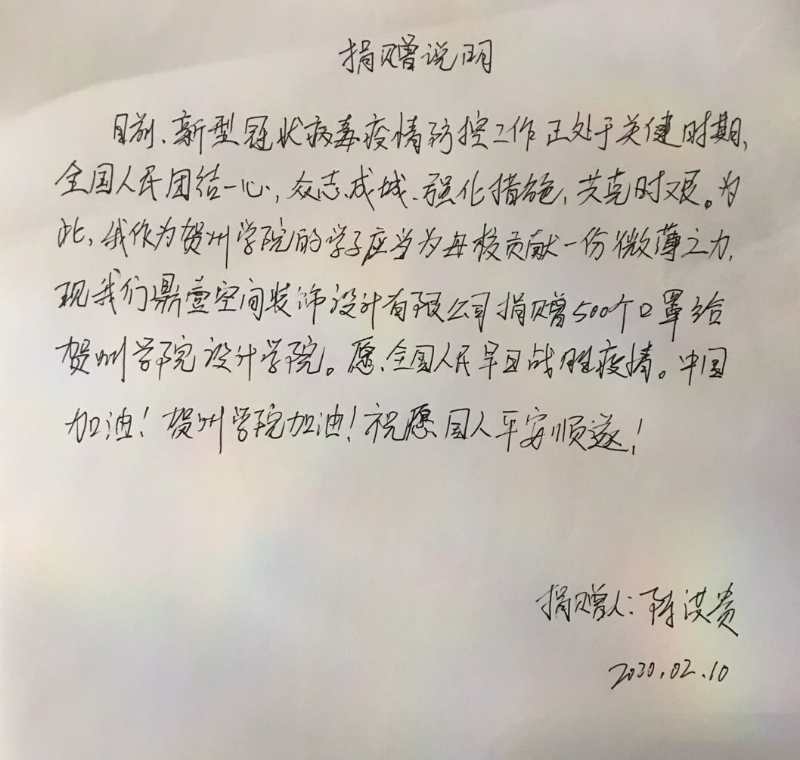 捐赠说明
目前、新型冠状病毒疫情防控工作正处于关健时期,
全国人民团结一心,众志成城、强化措施,共克时艰。为
此,我作为贺州学院的学子应当为母校贡献一份微薄之力,
现我们鼎壹空间装饰设计有限公司捐赠500个口罩给
贺州学院设计学院。愿、全国人民早日战胜疫情。中国
加油!贺州学院加油!祝愿国人平安顺遂!
捐赠人:陈洪贵
2020.02.10